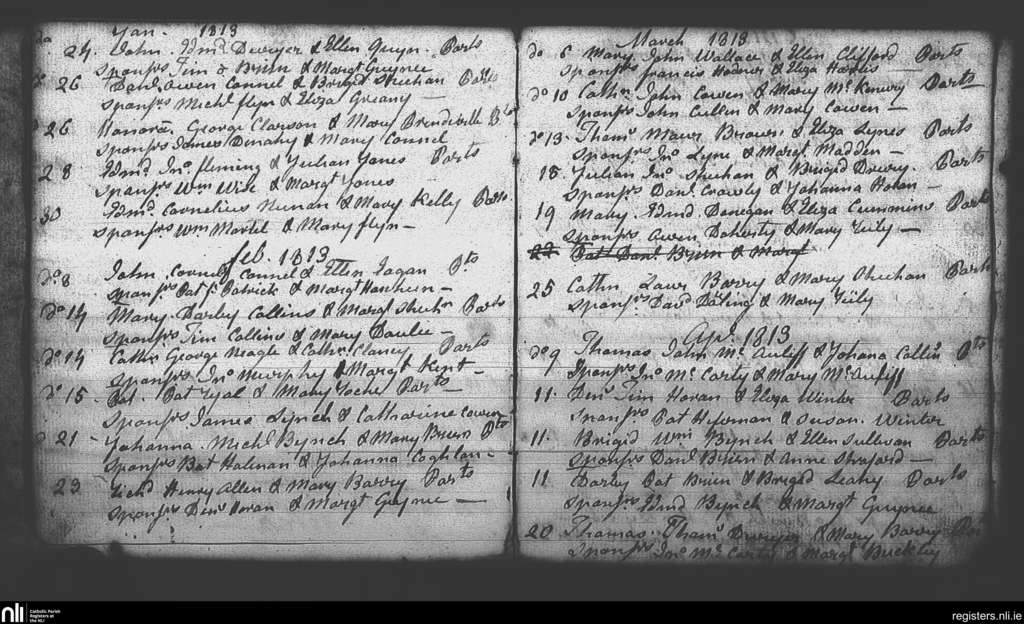 Jan. 1813
do 24. John. Edmd. Dwyer & Ellen Guyn. Parts
Sponsrs Tim o Brien & Margt Guynee
do 26 Danl. Owen Connel & Brigd Shechan Parts
Sponsrs Michl flyn & Eliza Greany —
do 26 Honora. George Clawson & Mary Brendeville Pts
Sponsrs James Denahy & Mary Connel
28 Edmd. Jno. fleming & Julian Jones Parts
Sponsrs Wm Wise & Margt Jones
30 Edmd. Cornelius Nunan & Mary Kelly Parts
Sponsrs. Wm Martel & Mary flyn —
feb. 1813
do 8 John Cornels Connel & Ellen Fagan Pts
Sponsrs Pat fs. Patrick & Margt
do 14 Mary. Darley Collins & Margt Sheehn Parts
Sponsrs Tim Collins & Mary Daulee —
do 14 Cathn George Neagle & Cathn. Clancy Parts
Sponsrs Jno Murphy & Margt Kent —
do 15. Pat. Pat & Mary Parts —
Sponsrs James Lynch & Catharine Cowen
do 21 Johanna. Michl Bynch & Mary Brien Pts
Sponsrs Bat & Johanna Coghlan —
23 Richd Henry Allen & Mary Barry Parts
Sponsrs Denis Horan & Margt Guynee —
March 1813
do 6 Mary. John Wallace & Ellen Clifford Parts
Sponsrs francis & Eliza
do 10 Cathn. John Cowen & Mary Mc Parts
Sponsrs John Cullen & Mary Cowen —
do 13. Thams Maur Brown & Eliza Lynes Parts
Sponsrs Jno Lyne & Margt Madden —
15 Julian Jno Sheehan & Brigid Parts
Sponsrs Danl Crowly & Johanna Horan —
19 Mary. Edmd Denegan & Eliza Cummins Parts
Sponsrs Owen Doherty & Mary —
22 Pat Danl. Brien & Margt
25 Cathn Laur Barry & Mary Sheehan Parts
Sponsrs Danl & Mary
Apr. 1813
do 9 Thomas John Mc Auliff & Johana Collin Pts
Sponsrs Jno Mc Carty & Mary McAuliff
11. Denis Tim Horan & Eliza Winter Parts
Sponsrs Pat & Susan Winter
11. Brigid Wm Bynch & Ellen Sullivan Parts
Sponsrs Danl Brien & Anne —
11 Darley Pat Brien & Brigid Leahy Parts
Sponsrs Edmd Bynch & Margt Guynee
20 Thomas Thams Dwyer & Mary Barry
Sponsrs Jno Mc Carty & Margt Buckley
nli
Catholic Parish
Registers at
the NLI
registers.nli.ie